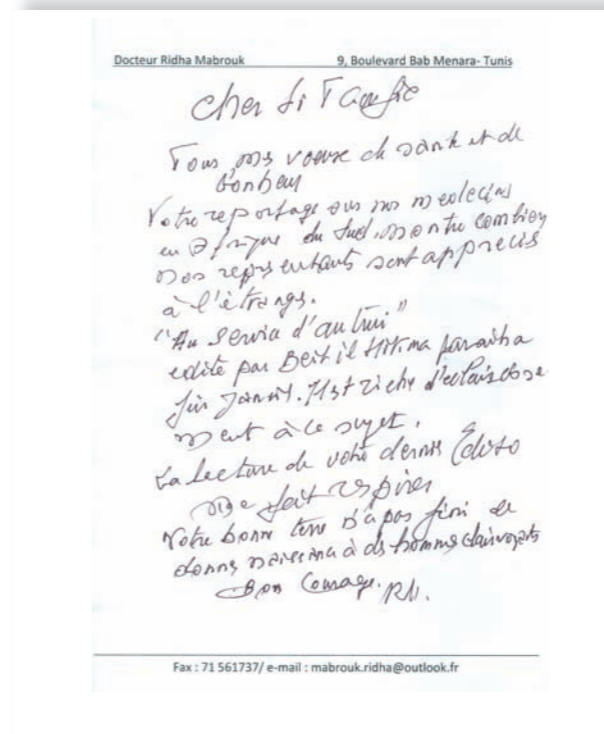 Docteur Ridha Mabrouk 9, Boulevard Bab Menara- Tunis
Cher Si Taoufic
Tous mes voeux de santé et de
bonheur
Votre reportage sur nos medecins
en Afrique du Sud, montre combien
nos représentants sont appreciés
à l'étranger.
"Au Service d'autrui"
edité par Beit il Hikma paraitra
fin Janvier. Il est riche d'eclaircisse
ment à ce sujet.
La lecture de votre dernier Edito
me fait respirer
Votre bonne terre n'a pas fini de
donner naissance à des hommes clairvoyants
Bon Courage. RM.
Fax : 71 561737/ e-mail : mabrouk.ridha@outlook.fr